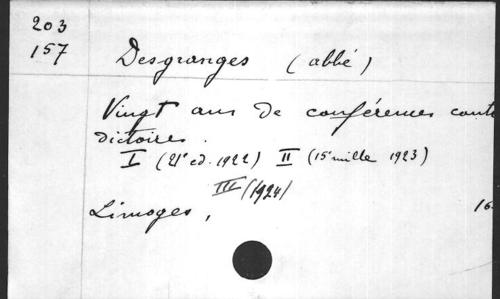 203
157
Desgranges (abbé)
Vingt ans de conférences contra
dictoires.
I (21e ed. 1922) II (15e mille 1923)
III (1924)
Limoges, 16